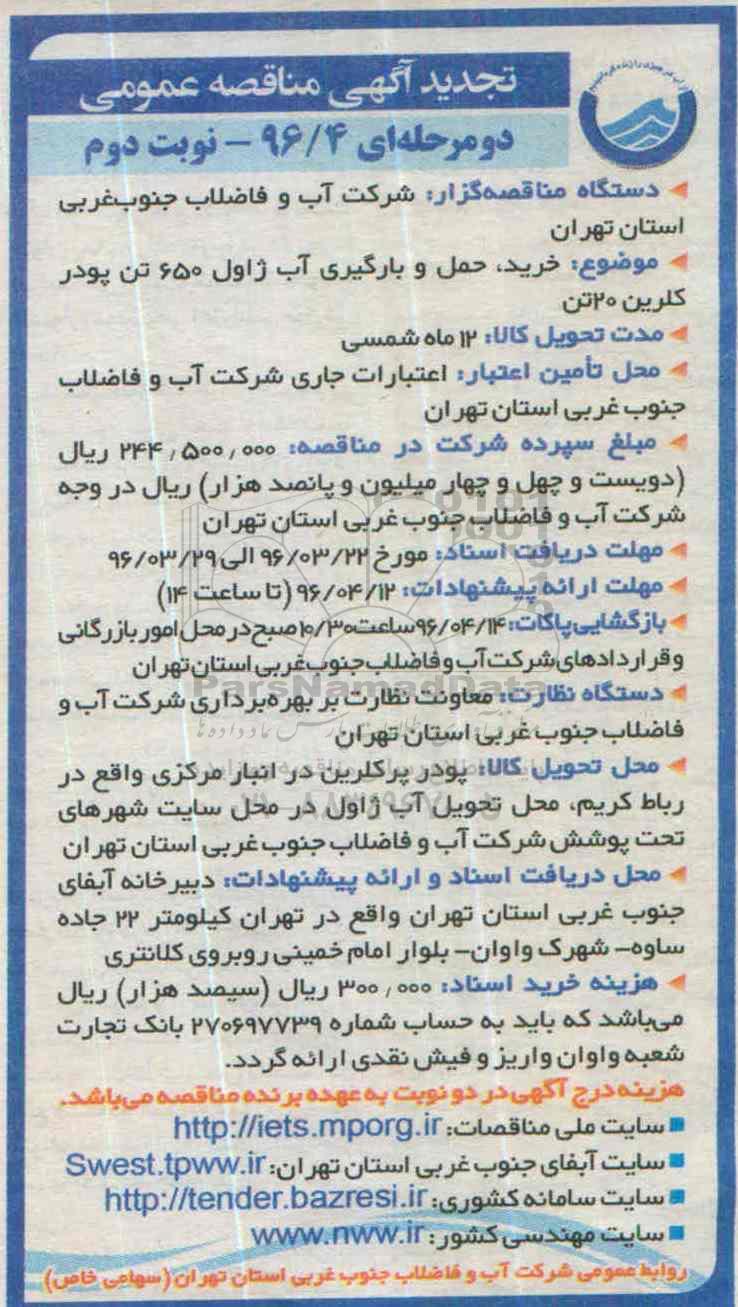 تجدید آگهی مناقصه عمومی
دو مرحله‌ای ۹۶/۴ – نوبت دوم
دستگاه مناقصه‌گزار: شرکت آب و فاضلاب جنوب‌غربی
استان تهران
موضوع: خرید، حمل و بارگیری آب ژاول ۶۵۰ تن پودر
کلرین ۲۰تن
مدت تحویل کالا: ۱۲ ماه شمسی
محل تأمین اعتبار: اعتبارات جاری شرکت آب و فاضلاب
جنوب غربی استان تهران
مبلغ سپرده شرکت در مناقصه: ۲۴۴٫۵۰۰٫۰۰۰ ریال
(دویست و چهل و چهار میلیون و پانصد هزار) ریال در وجه
شرکت آب و فاضلاب جنوب غربی استان تهران
مهلت دریافت اسناد: مورخ ۹۶/۰۳/۲۲ الی ۹۶/۰۳/۲۹
مهلت ارائه پیشنهادات: ۹۶/۰۴/۱۲ (تا ساعت ۱۴)
بازگشایی پاکات: ۹۶/۰۴/۱۴ ساعت ۱۰/۳۰ صبح در محل امور بازرگانی
و قراردادهای شرکت آب و فاضلاب جنوب غربی استان تهران
دستگاه نظارت: معاونت نظارت بر بهره‌برداری شرکت آب و
فاضلاب جنوب غربی استان تهران
محل تحویل کالا: پودر پرکلرین در انبار مرکزی واقع در
رباط کریم، محل تحویل آب ژاول در محل سایت شهرهای
تحت پوشش شرکت آب و فاضلاب جنوب غربی استان تهران
محل دریافت اسناد و ارائه پیشنهادات: دبیرخانه آبفای
جنوب غربی استان تهران واقع در تهران کیلومتر ۲۲ جاده
ساوه– شهرک واوان– بلوار امام خمینی روبروی کلانتری
هزینه خرید اسناد: ۳۰۰٫۰۰۰ ریال (سیصد هزار) ریال
می‌باشد که باید به حساب شماره ۲۷۰۶۹۷۷۳۹ بانک تجارت
شعبه واوان واریز و فیش نقدی ارائه گردد.
هزینه درج آگهی در دو نوبت به عهده برنده مناقصه می‌باشد.
سایت ملی مناقصات: http://iets.mporg.ir
سایت آبفای جنوب غربی استان تهران: Swest.tpww.ir
سایت سامانه کشوری: http://tender.bazresi.ir
سایت مهندسی کشور: www.nww.ir
روابط عمومی شرکت آب و فاضلاب جنوب غربی استان تهران (سهامی خاص)
ParsNamadData